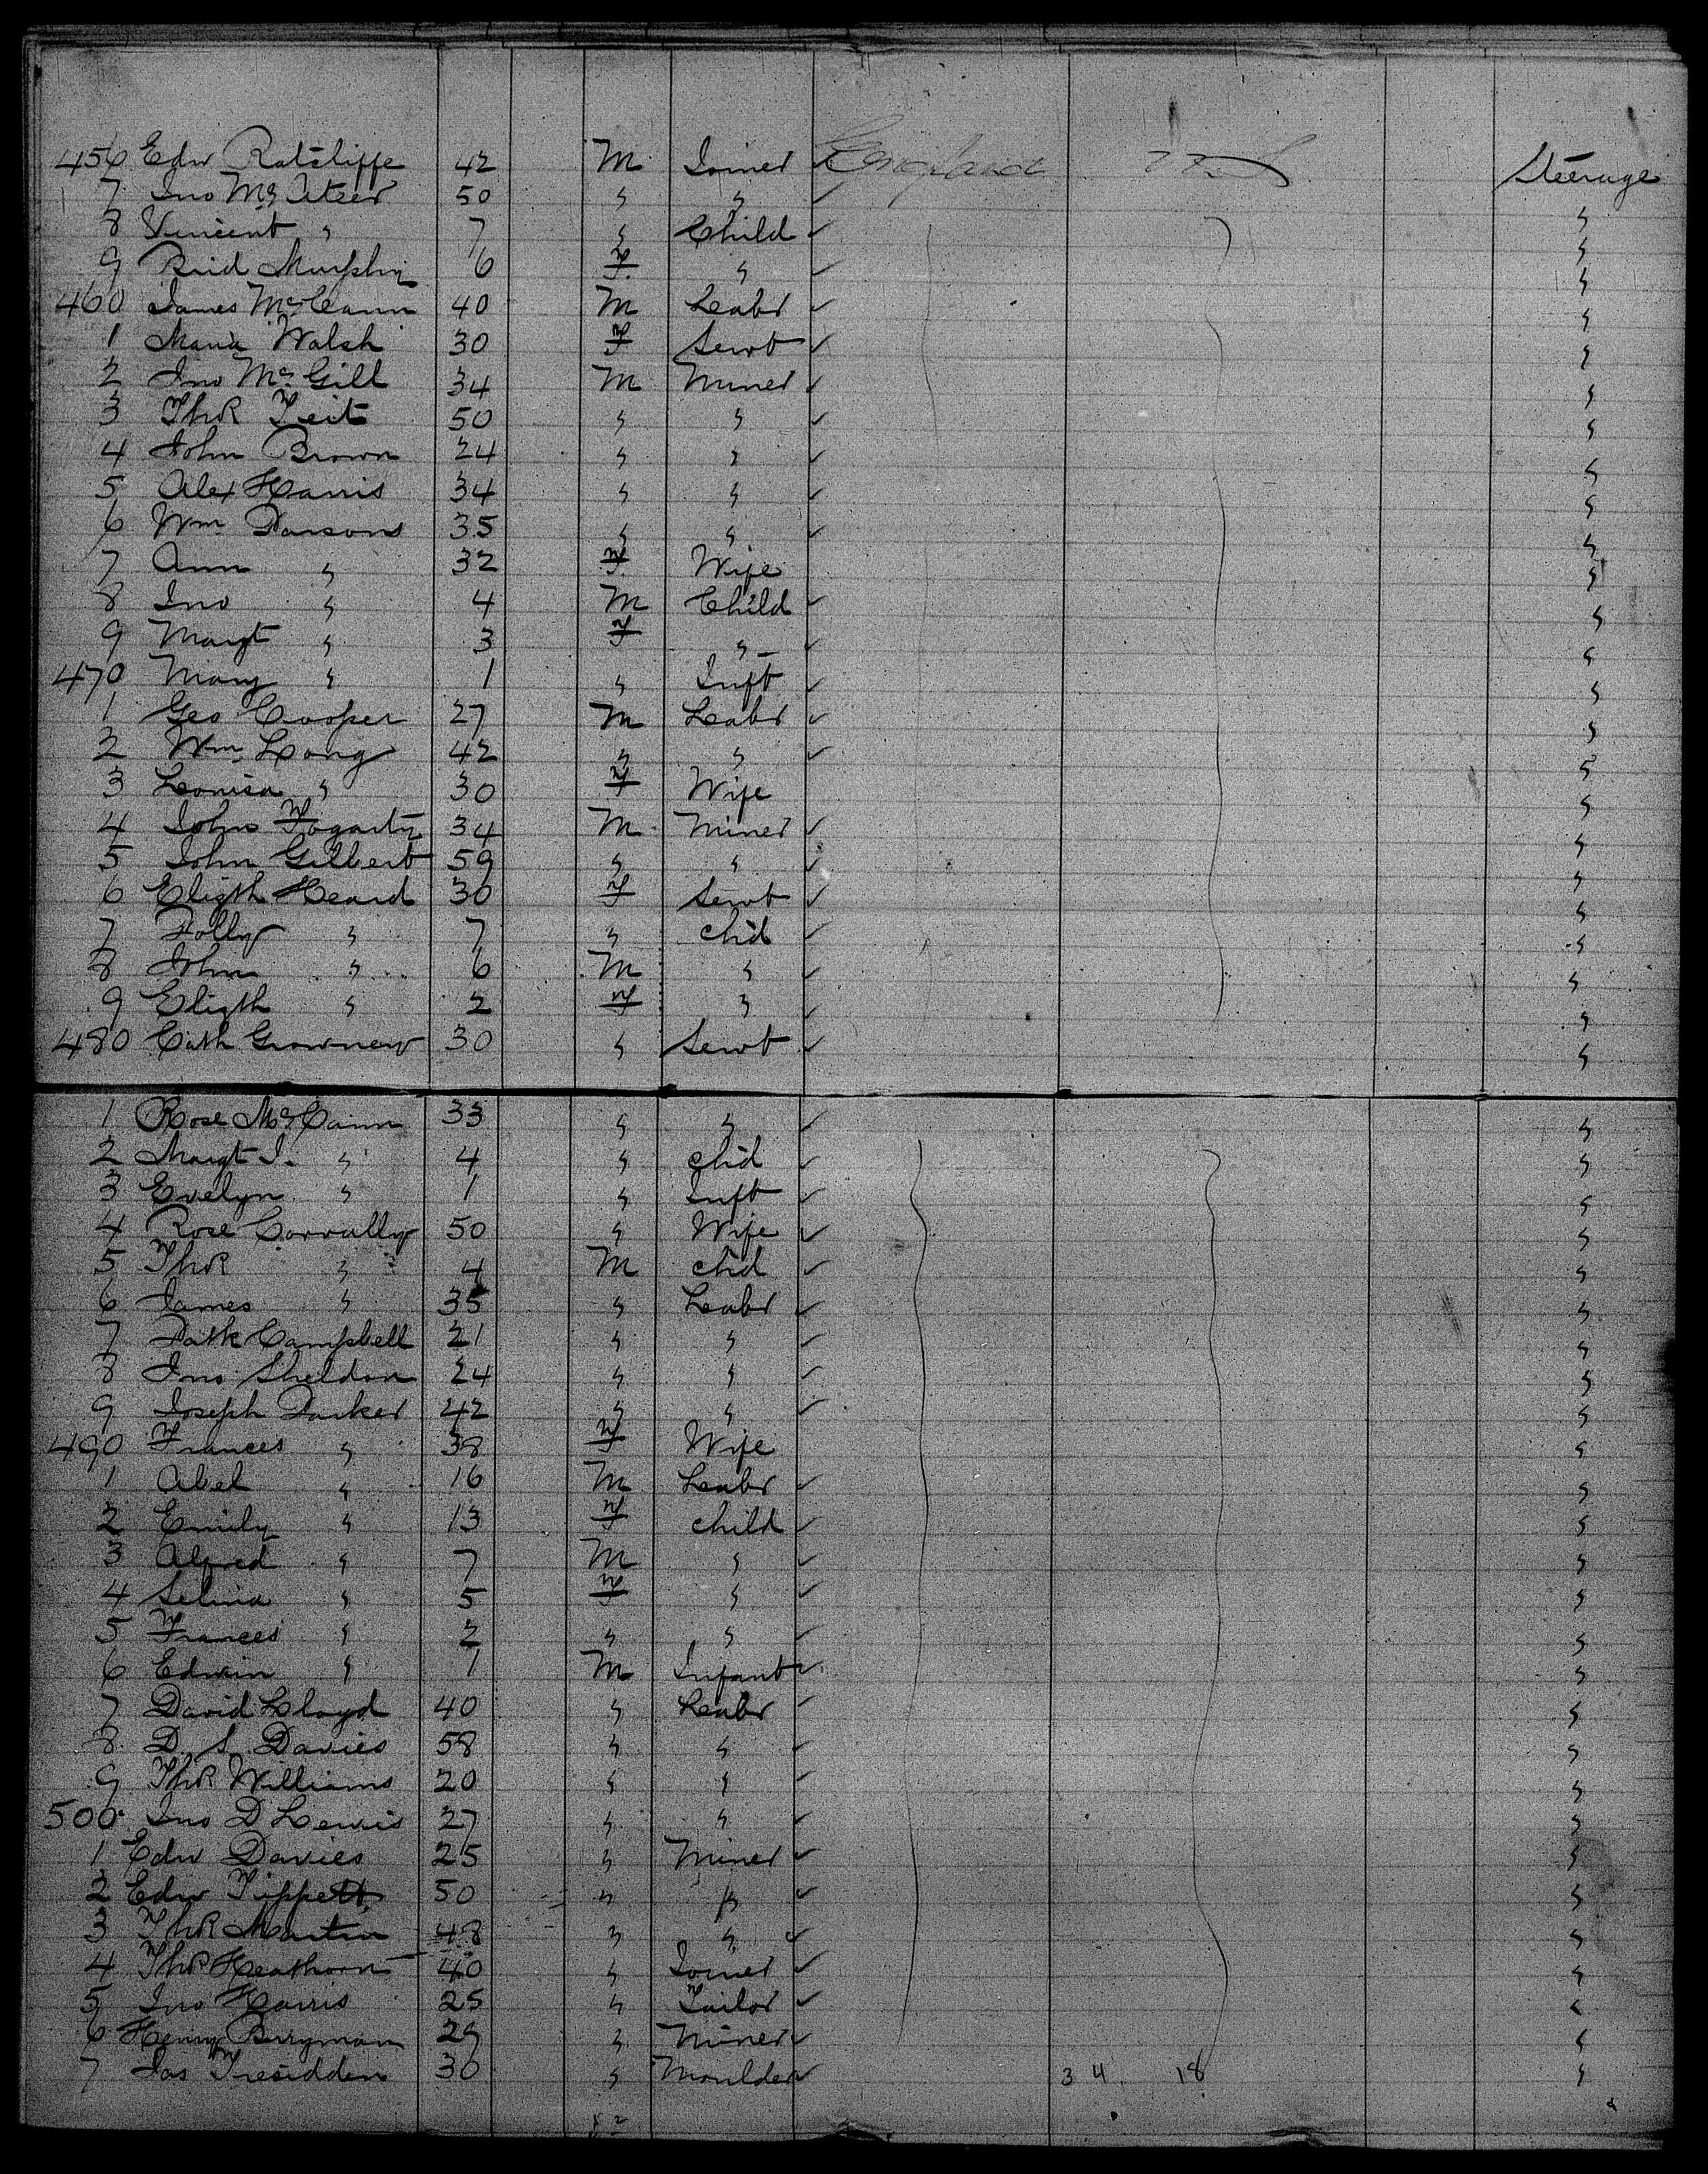 456 Edw Ratcliffe 42 M Joiner England U S Steerage
7 Jno McAteer 50 " " "
8 Vincent " 7 " Child "
9 Brid Murphy 6 F " "
460 James McCann 40 M Labr "
1 Maria Walsh 30 F Servt "
2 Jno McGill 34 M Miner "
3 Thos Teit 50 " " "
4 John Brown 24 " " "
5 Alex Harris 34 " " "
6 Wm Parsons 35 " " "
7 Ann " 32 F Wife "
8 Jno " 4 M Child "
9 Margt " 3 F " "
470 Mary " 1 " Inft "
1 Geo Cooper 27 M Labr "
2 Wm Long 42 " " "
3 Louisa " 30 F Wife "
4 John Fogarty 34 M Miner "
5 John Gilbert 59 " " "
6 Elizth Heard 30 F Servt "
7 Polly " 7 " chd "
8 John " 6 M " "
9 Elizth " 2 F " "
480 Cath Growney 30 " Servt "
1 Rose McCann 33 " " "
2 Margt J. " 4 " chd "
3 Evelyn " 1 " Inft "
4 Rose Corvally 50 " Wife "
5 Thos " 4 M chd "
6 James " 35 " Labr "
7 Patk Campbell 21 " " "
8 Jno Sheldon 24 " " "
9 Joseph Parker 42 " " "
490 Frances " 38 F Wife "
1 Abel " 16 M Labr "
2 Emily " 13 F child "
3 Alfred " 7 M " "
4 Selina " 5 F " "
5 Frances " 2 " " "
6 Edwin " 1 M Infant "
7 David Lloyd 40 " Labr "
8 D. S. Davies 58 " " "
9 Thos Williams 20 " " "
500 Jno D Lewis 27 " " "
1 Edw Davies 25 " Miner "
2 Edw Tippett 50 " " "
3 Thos Martin 48 " " "
4 Thos Heathorn 40 " Joiner "
5 Jno Harris 25 " Tailor "
6 Henry Berryman 29 " Miner "
7 Jas Tresidden 30 " Moulder 34 18 "